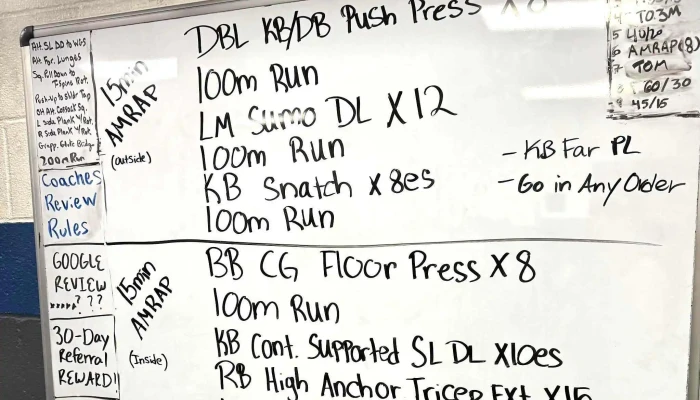 Alt. SL DD to WGS
Alt. For. Lunges
Sq. Pull Down to
T-Spine Rot.
Push-up to Shldr Tap
OH Alt. Cossack Sq.
L Side Plank w/ Rot.
R Side Plank w/ Rot.
Glute Bridge
200m Run
Coaches
Review
Rules
GOOGLE
REVIEW
? ? ?
30-Day
Referral
REWARD!!
15min
AMRAP
(outside)
DBL KB/DB Push Press
100m Run
LM Sumo DL X12
100m Run
KB Snatch X 8es
100m Run
- KB Far PL
- Go in Any Order
15min
AMRAP
(Inside)
BB CG Floor Press X 8
100m Run
KB Cont. Supported SL DL X10es
RB High Anchor Tricep Ext. X15
4 TO.3M
5 40/20
6 AMRAP(8)
7 TOM
8 60/30
9 45/15